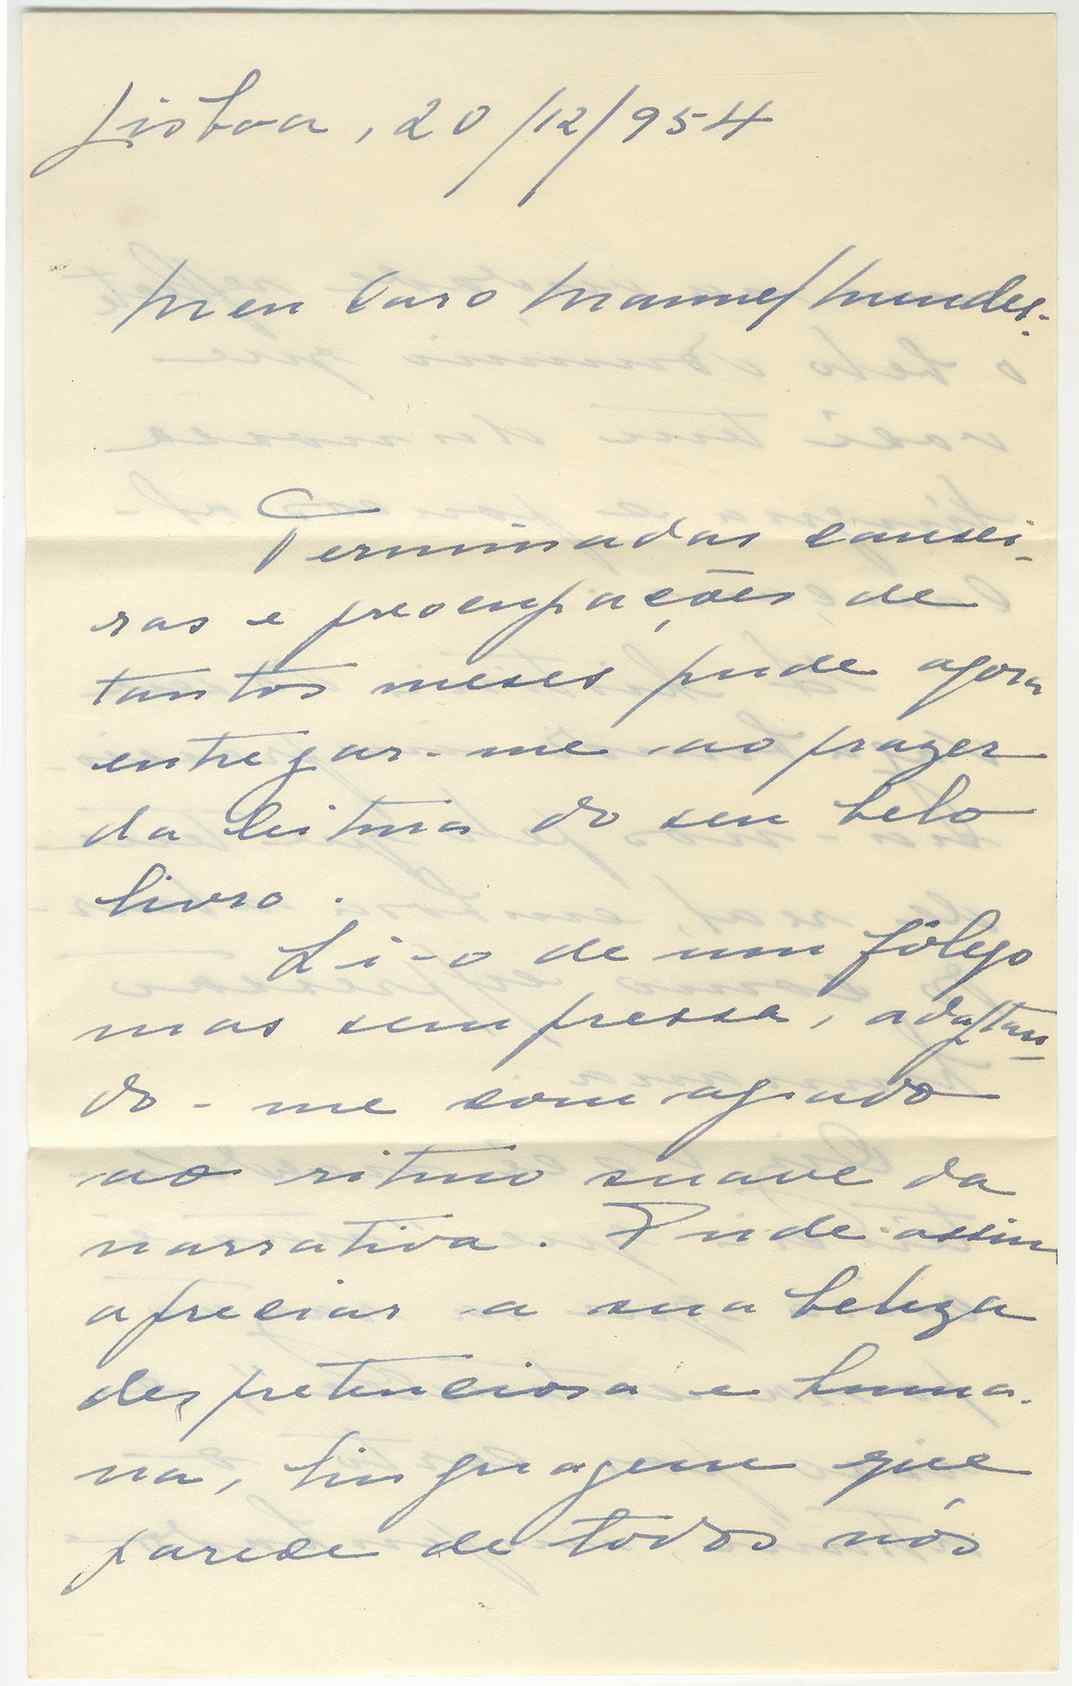 Lisboa, 20/12/954
Meu Caro Manuel Mendes:
Terminadas cansei-
ras e preocupações de
tantos meses pude agora
entregar-me ao prazer
da leitura do seu belo
livro.
Li-o de um fôlego
mas sem pressa, adaptan-
do-me com agrado
ao ritmo suave da
narrativa. Pude assim
apreciar a sua beleza
despretenciosa e huma-
na, linguagem que
parece de todos nós